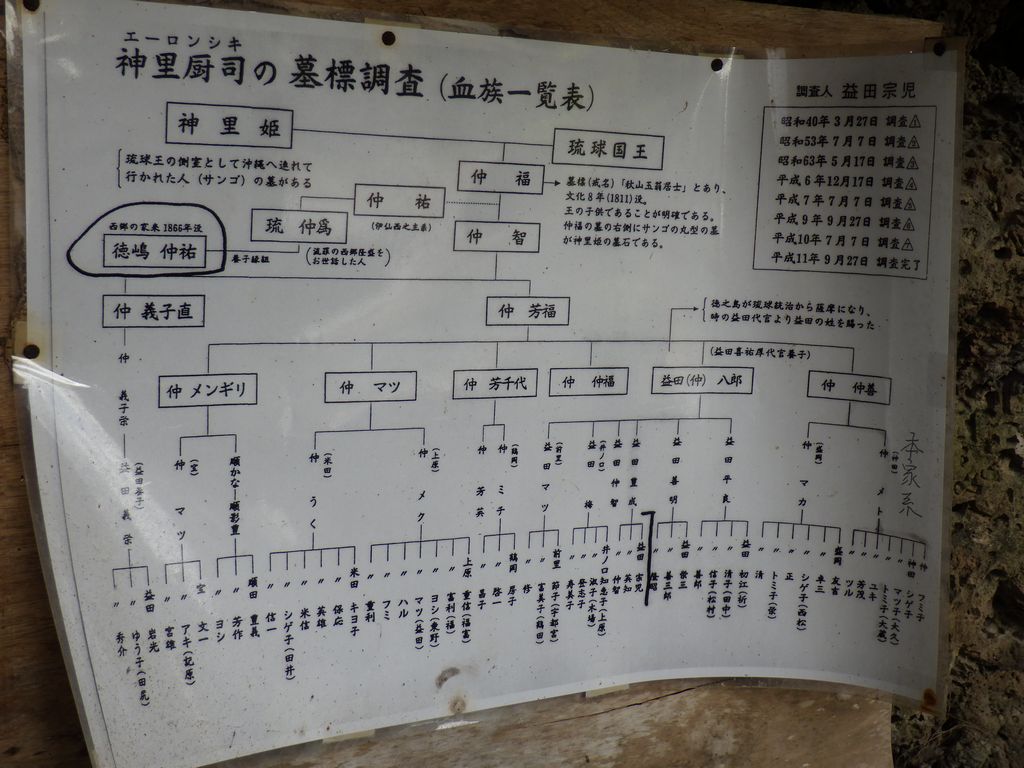 エーロンシキ
神里厨司の墓標調査(血族一覧表)
調査人 益田宗児
昭和40年3月27日 調査
昭和53年7月7日 調査
昭和63年5月17日 調査
平成6年12月17日 調査
平成7年7月7日 調査
平成9年9月27日 調査
平成10年7月7日 調査
平成11年9月27日 調査完了
神里姫
琉球国王
琉球王の側室として沖縄へ連れて
行かれた人(サンゴ)の墓がある
仲福
墓標(戒名)「秋山玉翁居士」とあり、
文化8年(1811)没。
王の子供であることが明確である。
仲福の墓の右側にサンゴの丸型の墓
が神里姫の墓石である。
仲祐
(伊仙西之主系)
琉仲爲
仲智
西郷の家来 1866年没
徳嶋 仲祐
養子縁組
(流罪の西郷隆盛を
お世話した人)
仲 義子直
仲 芳福
徳之島が琉球統治から薩摩になり、
時の益田代官より益田の姓を賜った
(益田喜祐厚代官養子)
仲 メンギリ
仲 マツ
仲 芳千代
仲 仲福
益田(仲)八郎
仲 仲善
仲 義子栄
(益田養子)
益田 義栄
仲 マツ
順かな―順彰重
(米田)
仲 うく
(上原)
仲 メク
仲 芳英
(鶴岡)
仲 ミチ
(前里)
益田 マツ
(井ノ口)
益田 梅
益田 仲智
益田 豊成
益田 善明
益田 平良
(盛岡)
仲 マカ
(神田)
仲 メト
本家系
〃 秀介
〃 ゆう子(田尻)
益田 岩光
〃 宮雄
〃 アキ(記原)
宝 文一
〃 ヨシ
〃 芳作
順田 豊義
〃 信一
〃 シゲ子(田井)
〃 米信
〃 英雄
〃 保応
米田 キヨ子
〃 重利
〃 フミ
〃 ハル
〃 マツ(益田)
〃 ヨシ(東野)
〃 富利(福)
上原 重信(福富)
〃 昌子
〃 啓一
鶴岡 房子
〃 修
〃 富美子(鶴田)
前里 節子(宇都宮)
〃 寿美子
〃 登志子
〃 淑子(木場)
井ノ口 知恵子(上原)
〃 仲智
〃 英知
益田 宗児
〃 隆昭
〃 善三郎
益田 栄三
〃 善郎
〃 信子(松村)
〃 清子(田中)
益田 初江(祈)
〃 清
〃 トミ子(栄)
〃 正
〃 シゲ子(西松)
〃 幸三
盛岡 友吉
〃 ツル
〃 芳茂
〃 ユキ
〃 トミ子(大蔵)
〃 マツ子(大久)
神田 シゲ子
仲 フミ子